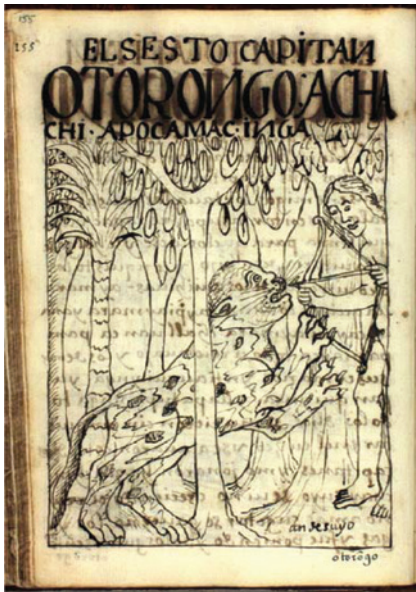 155
155
EL SESTO CAPITAN
OTORONGO: ACHA
CHI · APOCAMAC · INGA
andesuyo
otorõgo